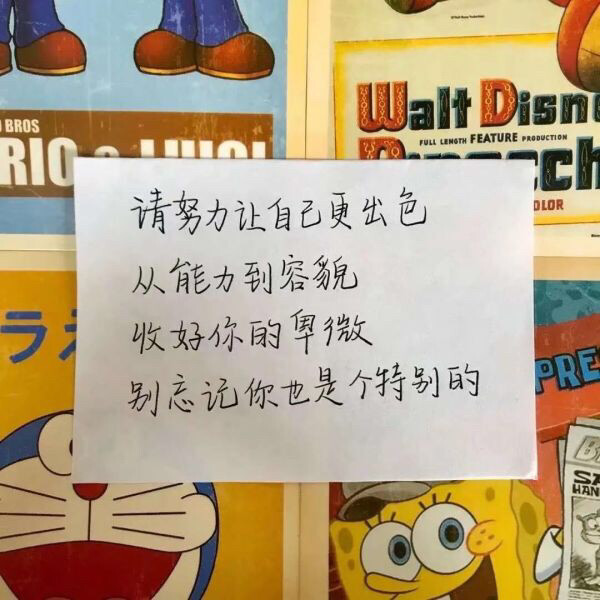 BROS
RIO & LUIGI
Walt Disn
FULL LENGTH FEATURE PRODUCTION
OLOR
请努力让自己更出色
从能力到容貌
收好你的卑微
别忘记你也是个特别的
ラ
PRE